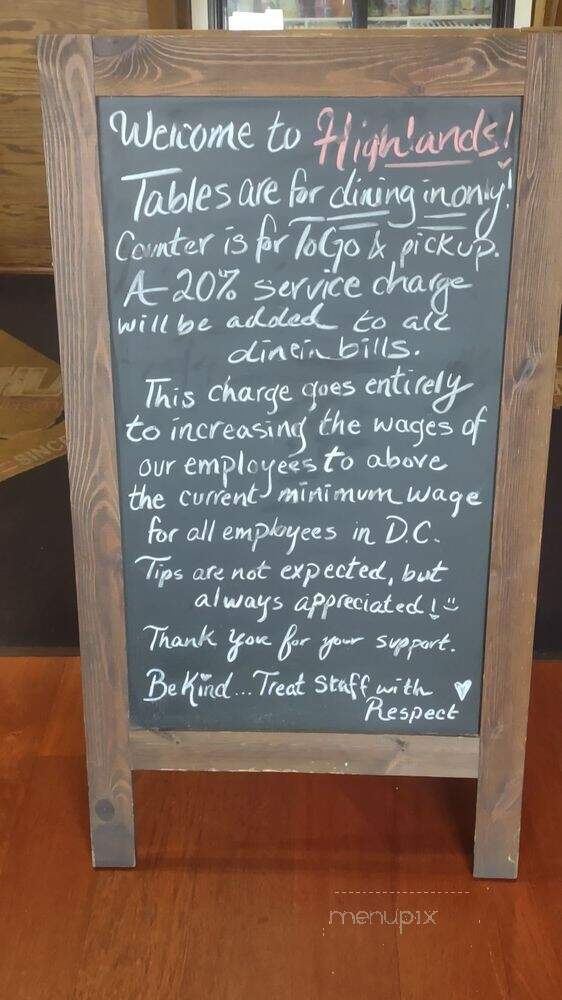 Welcome to Highlands!
Tables are for dining in only!
Counter is for ToGo & pickup.
A 20% service charge
will be added to all
dinein bills.
This charge goes entirely
to increasing the wages of
our employees to above
the current minimum wage
for all employees in D.C.
Tips are not expected, but
always appreciated!
Thank you for your support.
Be Kind... Treat Staff with
Respect
SINCE
menupix